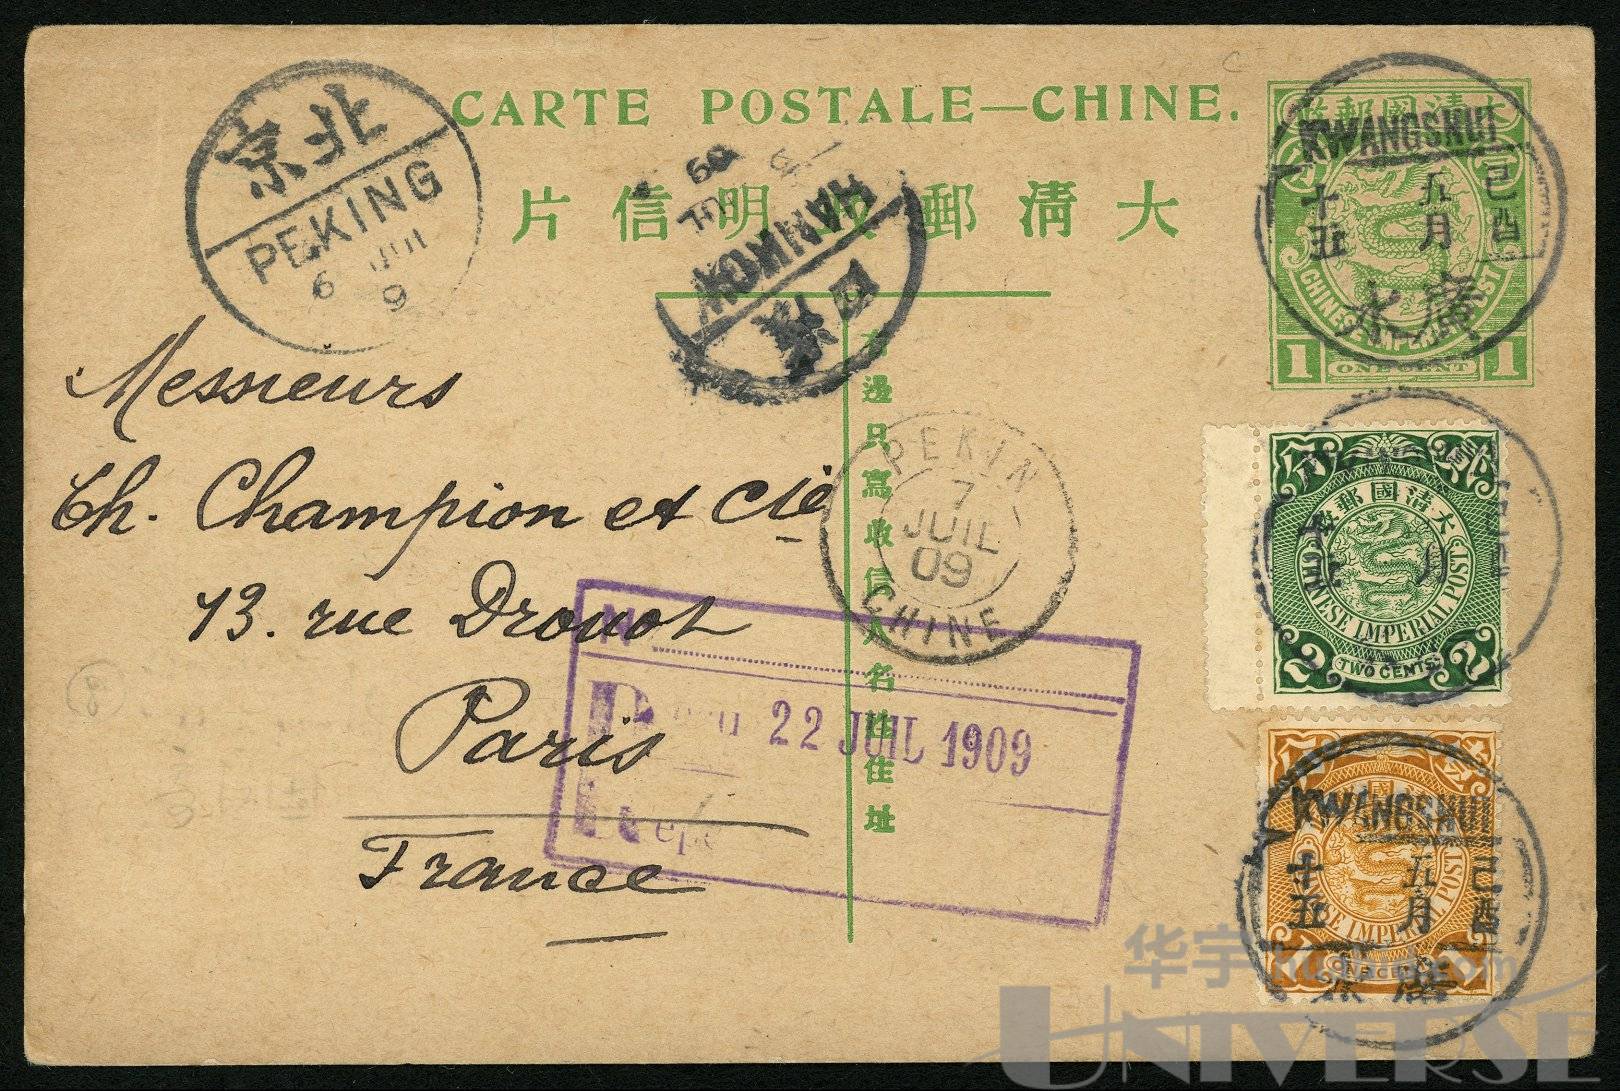 CARTE POSTALE—CHINE.
片信明收郵清大
右邊只寫收信人名姓住址
Messieurs
Ch. Champion et Cie
13. rue Drouot
Paris
France
京北
PEKING
6 JUI
9
HANKOW
漢
JUL
09
PEKIN
7
JUIL
09
CHINE
No
22 JUIL 1909
Rép
KWANGSHUI
己酉
五月
十五
廣水
CHINESE IMPERIAL POST
1 ONE CENT 1
政郵國清大
CHINESE IMPERIAL POST
2 TWO CENTS 2
KWANGSHUI
己酉
五月
十五
廣水
CHINESE IMPERIAL POST
ONE CENT
华宇
huabid.com
UNIVERSE